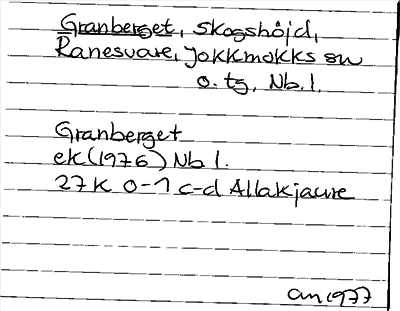 Granberget, skogshöjd,
Ranesvare, Jokkmokks sn
o. tg, Nb. l.
Granberget
ek (1976) Nb l.
27 K 0-1 c-d Allakjaure
an 1977